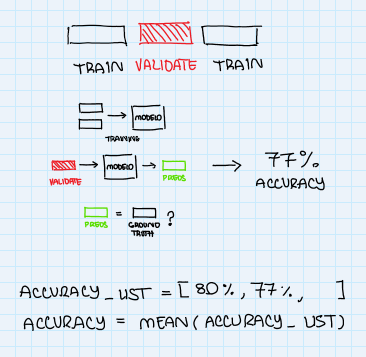 TRAIN VALIDATE TRAIN
MODELO
TRAINING
MODELO 77%
VALIDATE PREDS ACCURACY
= ?
PREDS GROUND
TRUTH
ACCURACY_LIST = [80%, 77%, ]
ACCURACY = MEAN(ACCURACY_LIST)